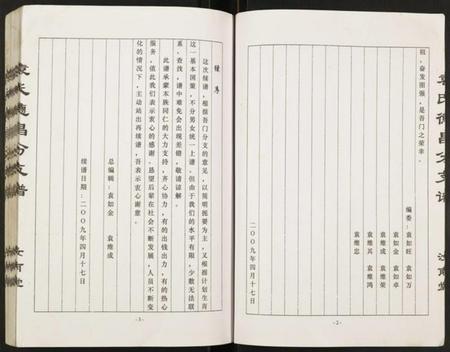 祖，奋发图强，是吾门之荣幸。
编委：袁如旺 袁如万
袁如金 袁如卓
袁维成 袁维荣
袁维其 袁维鸿
袁维忠
二〇〇九年四月十七日
-2-
袁氏德昌分支谱
汝南堂
续序
这次续谱，根据吾门分支的意见，以简明扼要为主，又根据计划生育
这一基本国策，不分男女统一上谱。但由于我们的水平有限，少数无法联
系、查找，谱中难免会出现差错，敬请谅解。
此谱承蒙本族同仁的大力支持，齐心协力，有的出钱出力，有的热心
服务，依此我们表示衷心的感谢。恳望后辈在社会不断发展，人员不断变
化的情况下，主动站出再续谱，吾表示衷心谢意。
总编辑：袁如金 袁维成
续谱日期：二〇〇九年四月十七日
-3-
袁氏德昌分支谱
汝南堂